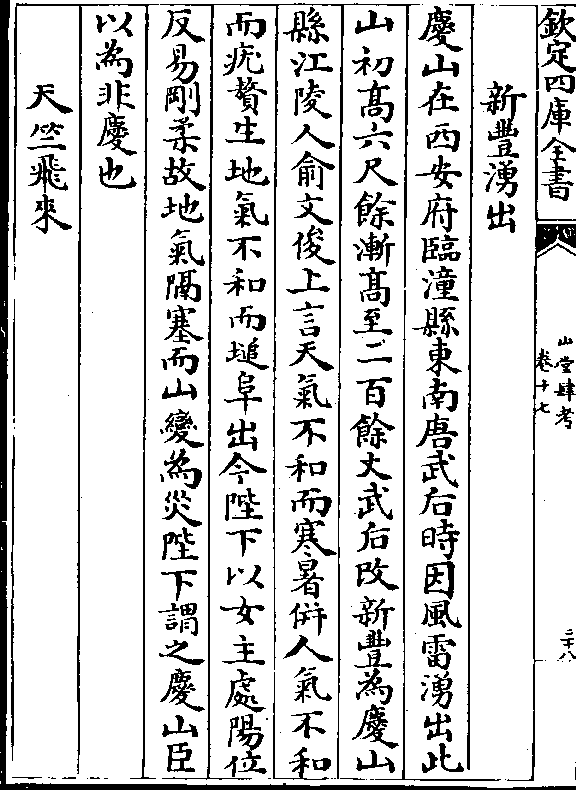 欽定四庫全書
山堂肆考
卷十七
二十八
新豐湧出
慶山在西安府臨潼縣東南唐武后時因風雷湧出此
山初髙六尺餘漸髙至二百餘丈武后改新豐為慶山
縣江陵人俞文俊上言天氣不和而寒暑併人氣不和
而疣贅生地氣不和而塠阜出今陛下以女主處陽位
反易剛柔故地氣隔塞而山變為災陛下謂之慶山臣
以為非慶也
天竺飛來